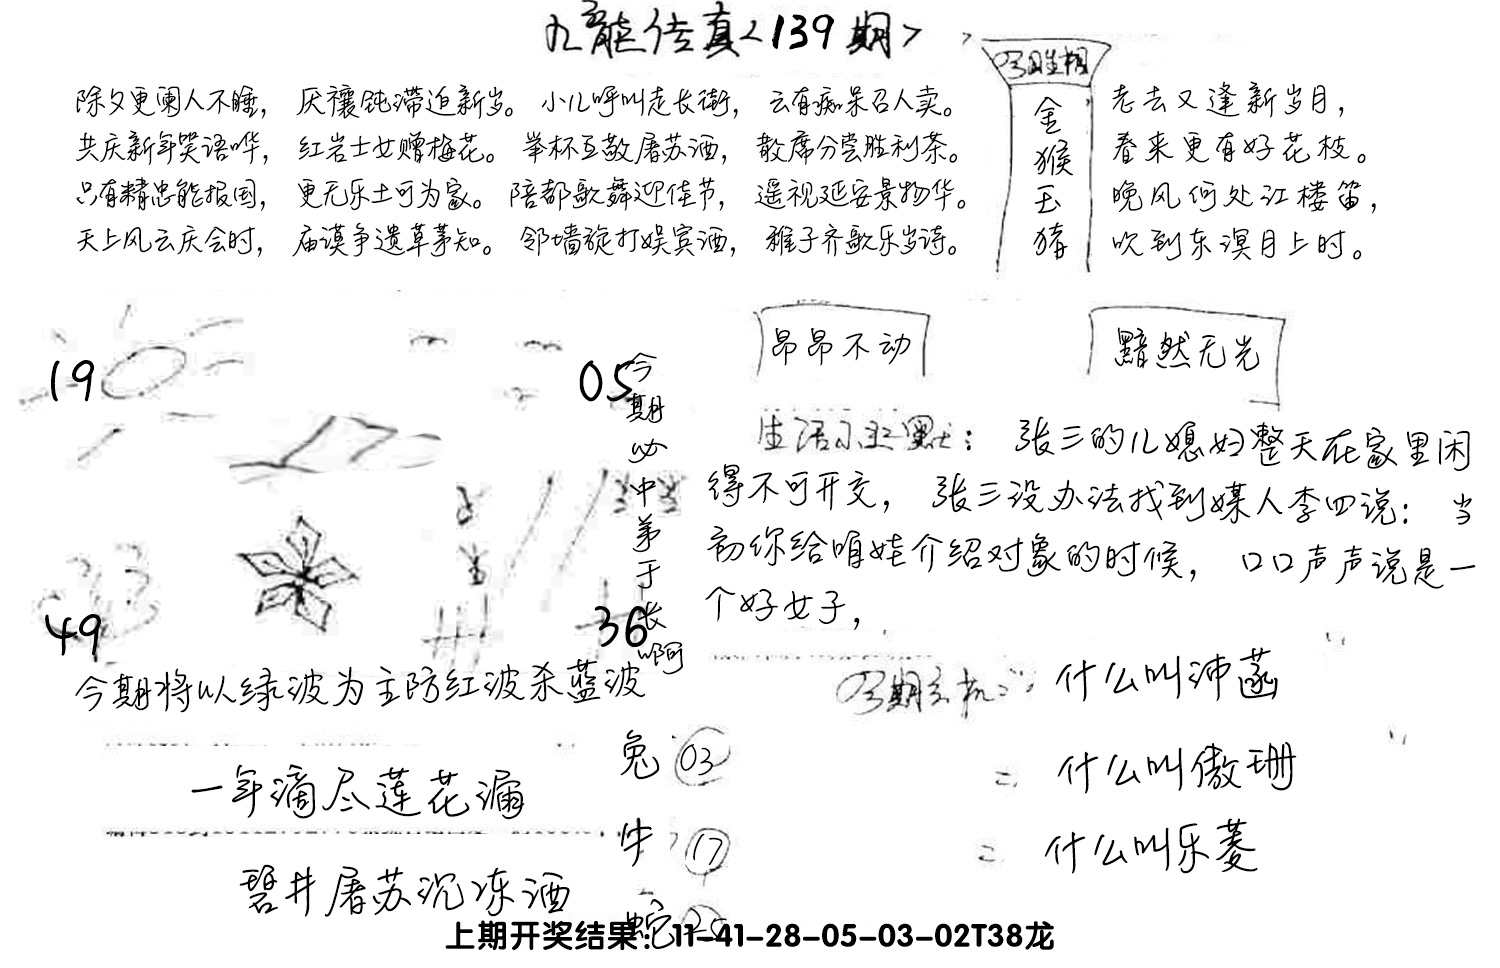 九龙传真<139期>
今期生相
金猴玉猪
除夕更阑人不睡， 厌禳钝滞迫新岁。 小儿呼叫走长街， 云有痴呆召人卖。
共庆新年笑语哗， 红岩士女赠梅花。 举杯互敬屠苏酒， 散席分尝胜利茶。
只有精忠能报国， 更无乐土可为家。 陪都歌舞迎佳节， 遥视延安景物华。
天上风云庆会时， 庙谟争遗草茅知。 邻墙旋打娱宾酒， 稚子齐歌乐岁诗。
老去又逢新岁月，
春来更有好花枝。
晚风何处江楼笛，
吹到东溟月上时。
19
05
49
36
今期必中第于长啊
今期将以绿波为主防红波杀蓝波
昂昂不动
黯然无光
生活小幽默： 张三的儿媳妇整天在家里闲
得不可开交， 张三没办法找到媒人李四说： 当
初你给咱娃介绍对象的时候， 口口声声说是一
个好女子，
今期玄机： 什么叫沛菡
= 什么叫傲珊
= 什么叫乐菱
一年滴尽莲花漏
碧井屠苏沉冻酒
兔 03
牛 17
蛇 25
上期开奖结果：11-41-28-05-03-02T38龙